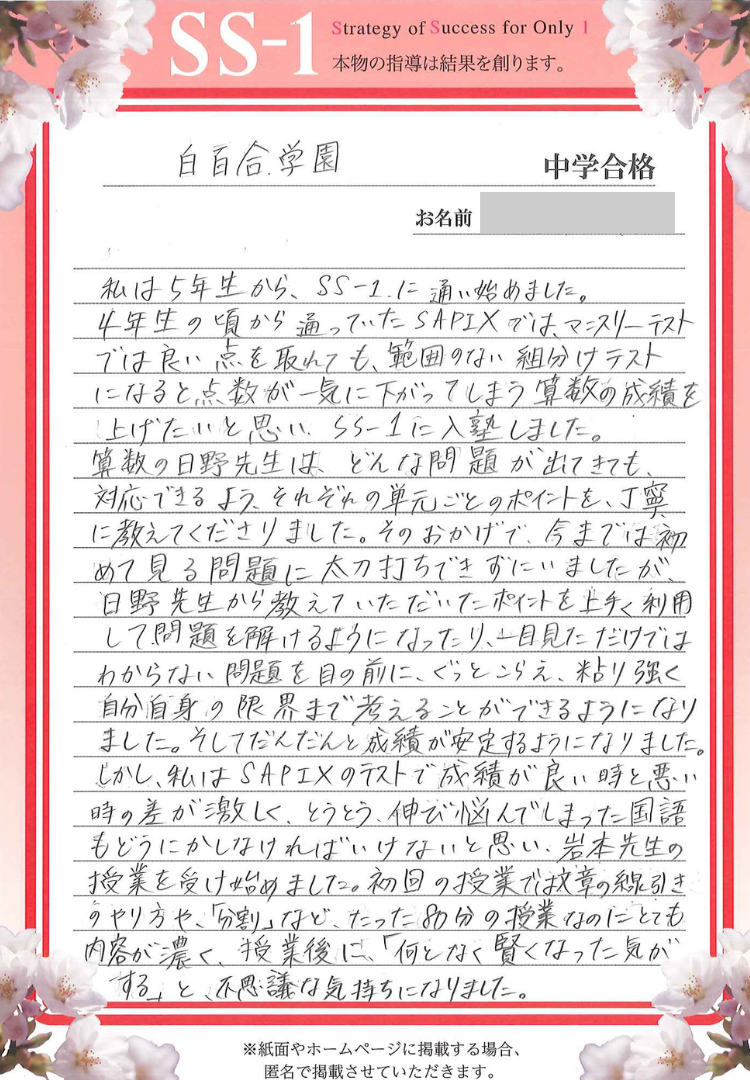 SS-1
Strategy of Success for Only 1
本物の指導は結果を創ります。
白百合学園 中学合格
お名前
私は5年生から、SS-1に通い始めました。
4年生の頃から通っていたSAPIXでは、マンスリーテスト
では良い点を取れても、範囲のない組分けテスト
になると点数が一気に下がってしまう算数の成績を
上げたいと思い、SS-1に入塾しました。
算数の日野先生は、どんな問題が出てきても、
対応できるよう、それぞれの単元ごとのポイントを、丁寧
に教えてくださりました。そのおかげで、今までは初
めて見る問題に太刀打ちできずにいましたが、
日野先生から教えていただいたポイントを上手く利用
して問題を解けるようになったり、一目見ただけでは
わからない問題を目の前に、ぐっとこらえ、粘り強く
自分自身の限界まで考えることができるようになり
ました。そしてだんだんと成績が安定するようになりました。
しかし、私はSAPIXのテストで成績が良い時と悪い
時の差が激しく、とうとう、伸び悩んでしまった国語
もどうにかしなければいけないと思い、岩本先生の
授業を受け始めました。初回の授業では文章の線引き
のやり方や、「分割」など、たった80分の授業なのにとても
内容が濃く、授業後に、「何となく賢くなった気が
する」と、不思議な気持ちになりました。
※紙面やホームページに掲載する場合、
匿名で掲載させていただきます。